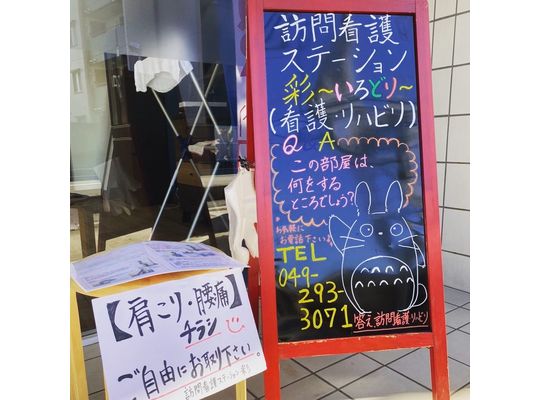 訪問看護
ステーション
彩～いろどり～
(看護・リハビリ)
Q A
この部屋は、
何をする
ところでしょう?
お気軽に
お電話下さい♪
TEL
049-
293-
3071
答え、訪問看護・リハビリ
【肩こり・腰痛】
チラシ
ご自由にお取り下さい。
訪問看護ステーション彩り